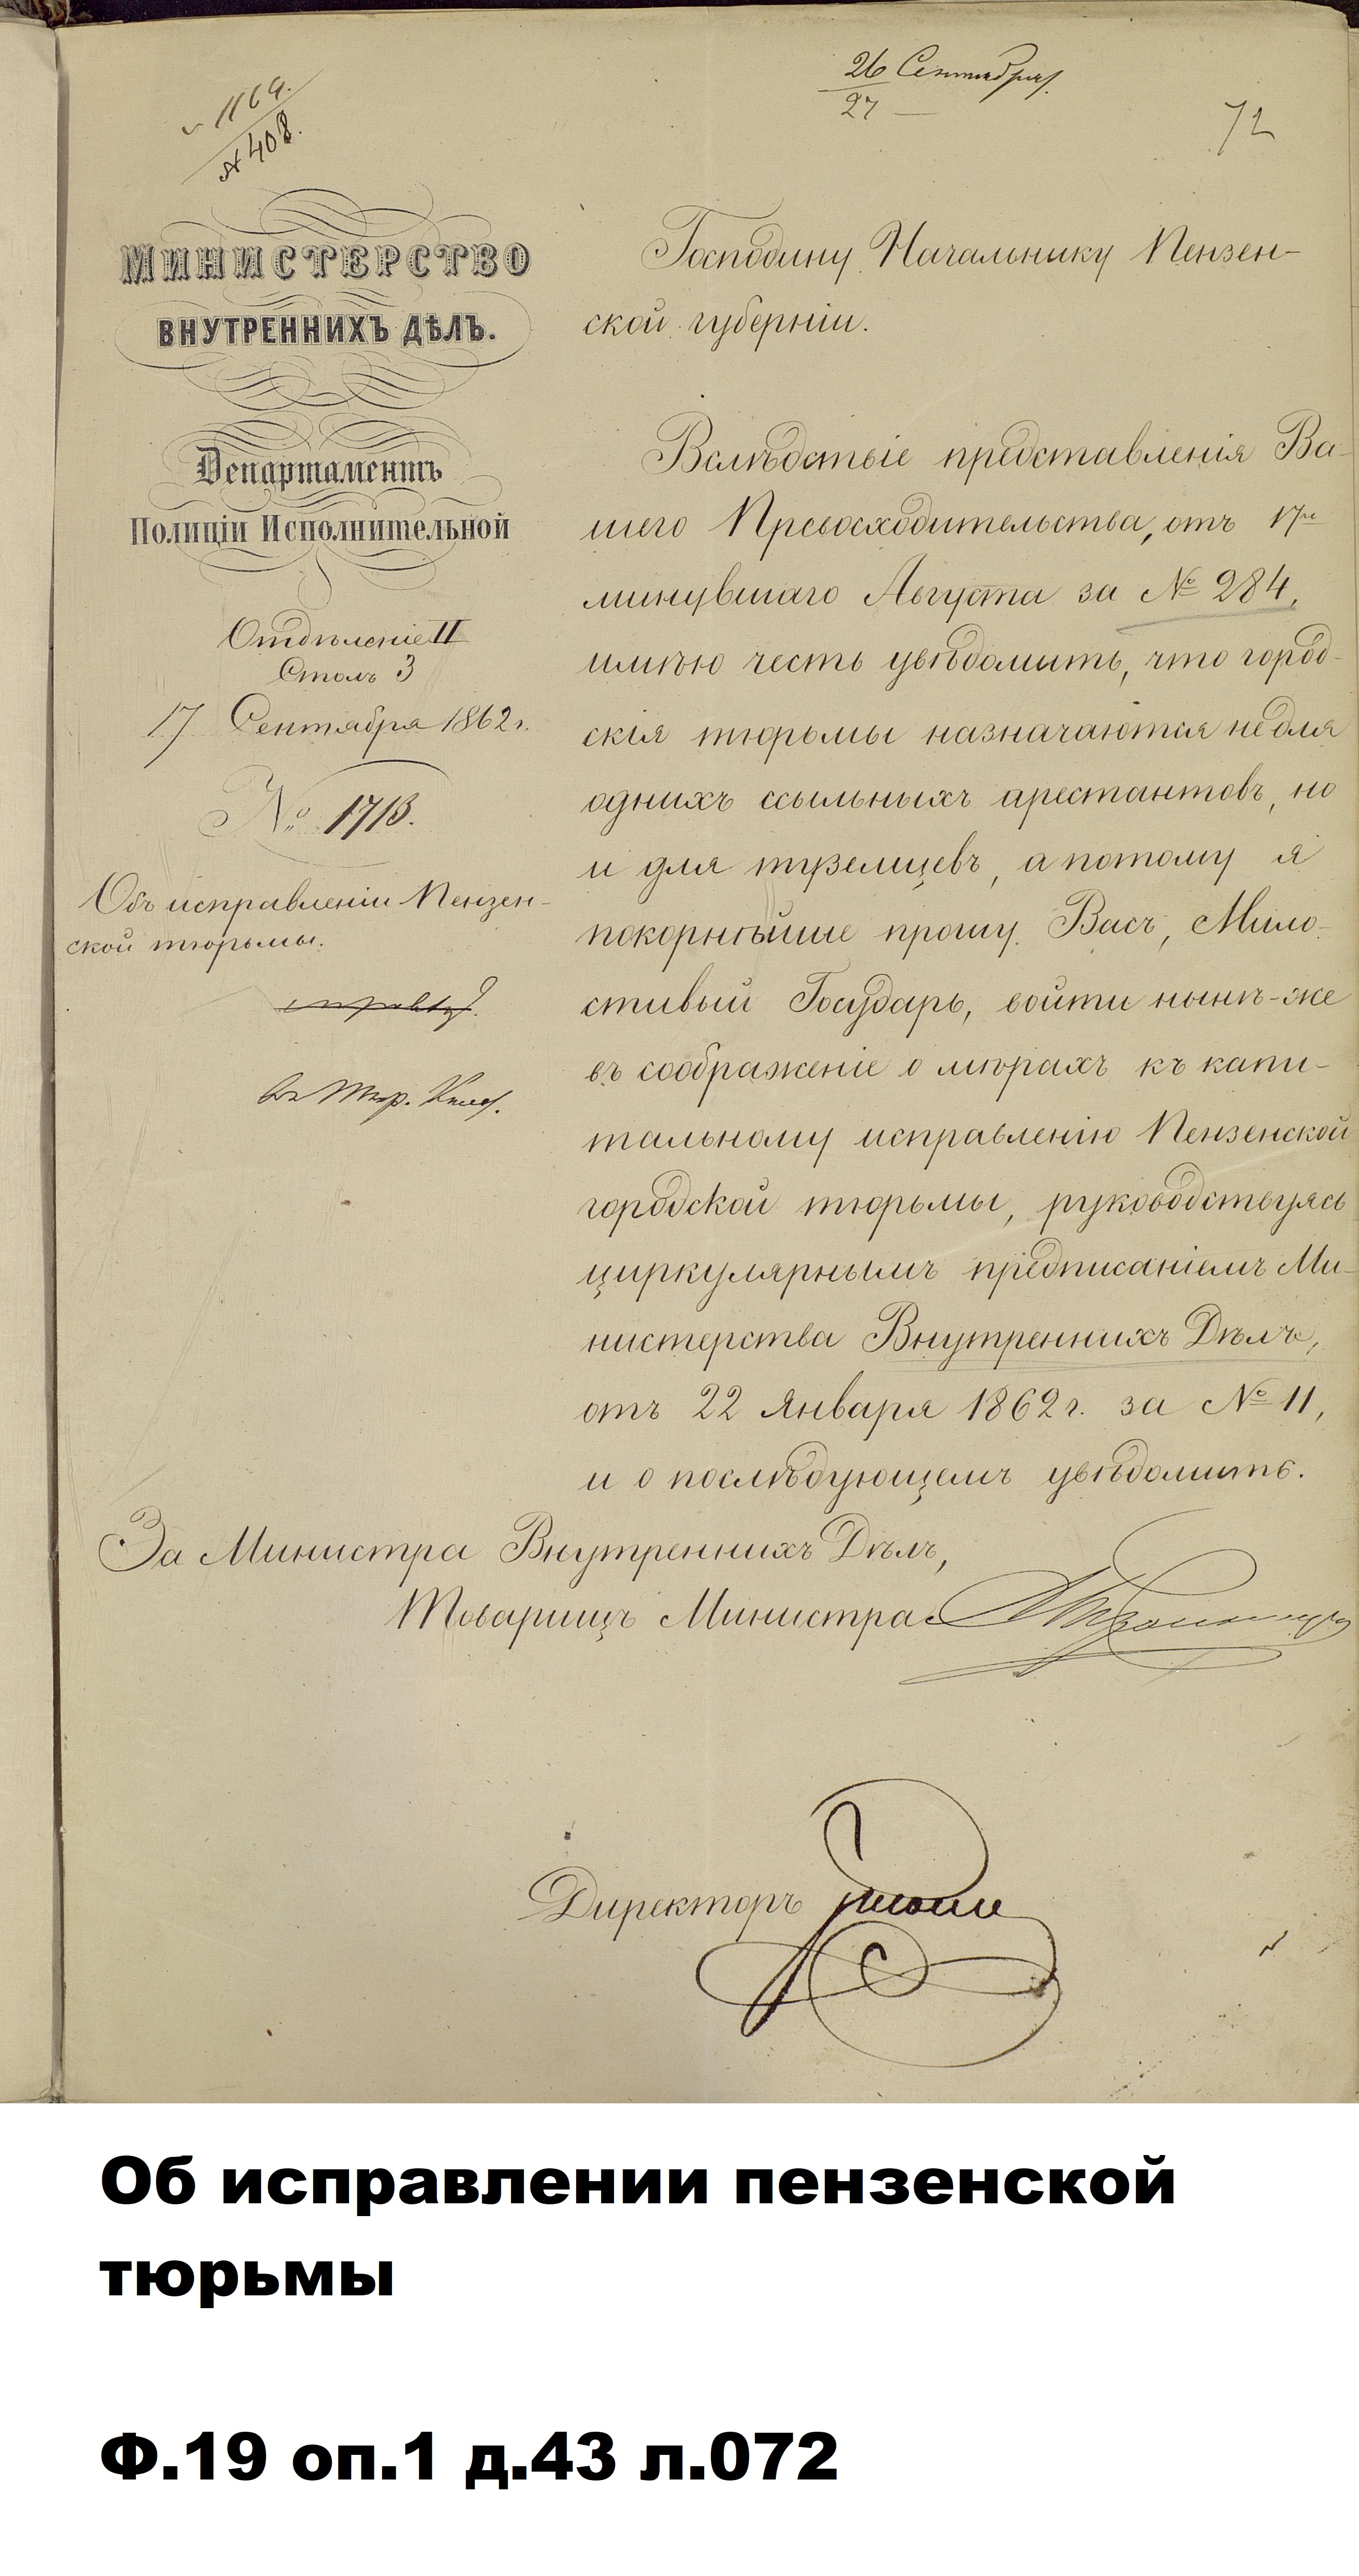 26 Сентября
27
1164.
№ 408.
72
МИНИСТЕРСТВО
ВНУТРЕННИХЪ ДѢЛЪ.
Департаментъ
Полиціи Исполнительной
Отдѣленіе II
Столъ 3
17 Сентября 1862 г.
№ 1713.
Объ исправленіи Пензен-
ской тюрьмы.
Господину Начальнику Пензен-
ской губерніи.
Вслѣдствіе представленія Ва-
шего Превосходительства, отъ 17го
минувшаго Августа за № 284,
имѣю честь увѣдомить, что город-
скія тюрьмы назначаются не для
однихъ ссыльныхъ арестантовъ, но
и для туземцевъ, а потому я
покорнѣйше прошу Васъ, Мило-
стивый Государь, войти нынѣ-же
въ соображеніе о мѣрахъ къ капи-
тальному исправленію Пензенской
городской тюрьмы, руководствуясь
циркулярнымъ предписаніемъ Ми-
нистерства Внутреннихъ Дѣлъ,
отъ 22 Января 1862 г. за № 11,
и о послѣдующемъ увѣдомить.
За Министра Внутреннихъ Дѣлъ,
Товарищъ Министра
Директоръ
Об исправлении пензенской
тюрьмы
Ф.19 оп.1 д.43 л.072